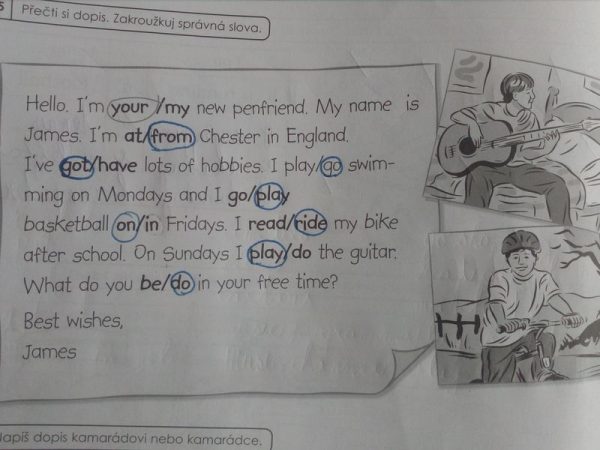 5 Přečti si dopis. Zakroužkuj správná slova.
Hello. I'm your/my new penfriend. My name is
James. I'm at/from Chester in England.
I've got/have lots of hobbies. I play/go swim-
ming on Mondays and I go/play
basketball on/in Fridays. I read/ride my bike
after school. On Sundays I play/do the guitar.
What do you be/do in your free time?
Best wishes,
James
Napiš dopis kamarádovi nebo kamarádce.